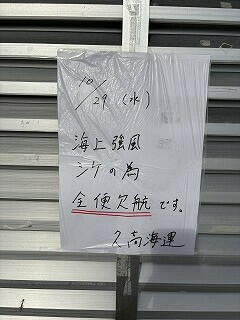 10/29(水)
海上強風
シケの為
全便欠航です。
久高海運